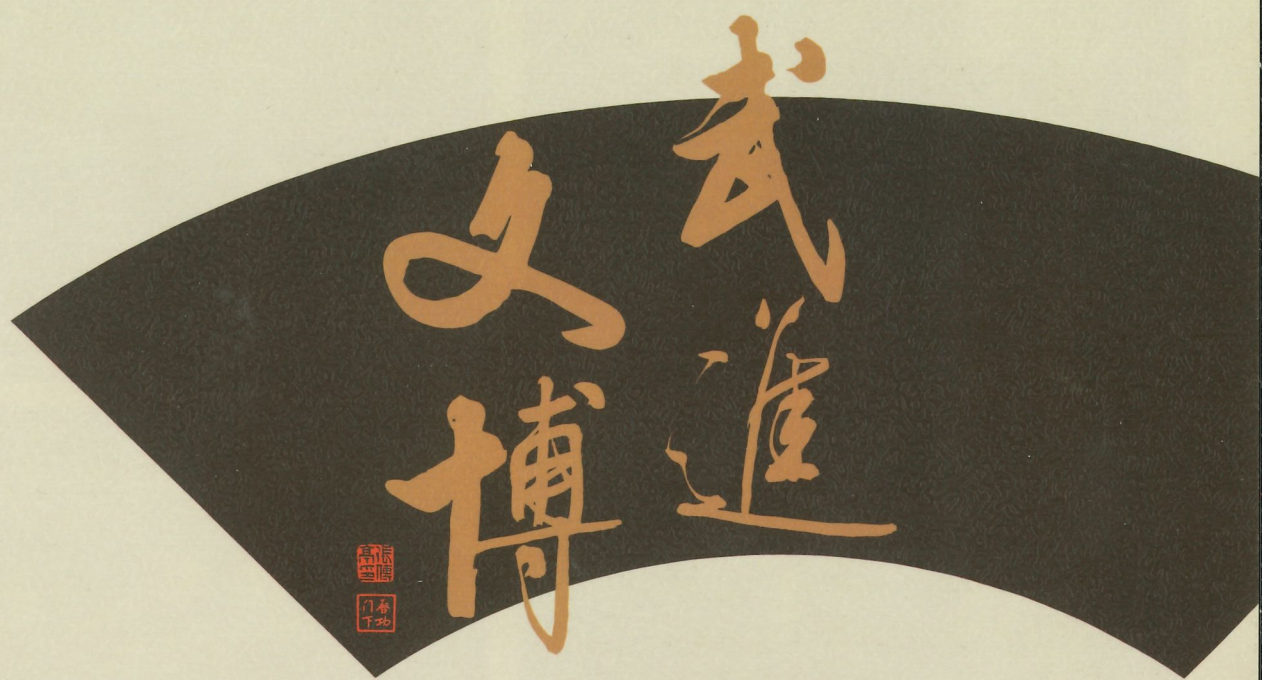 武進
文博
啓功
门下